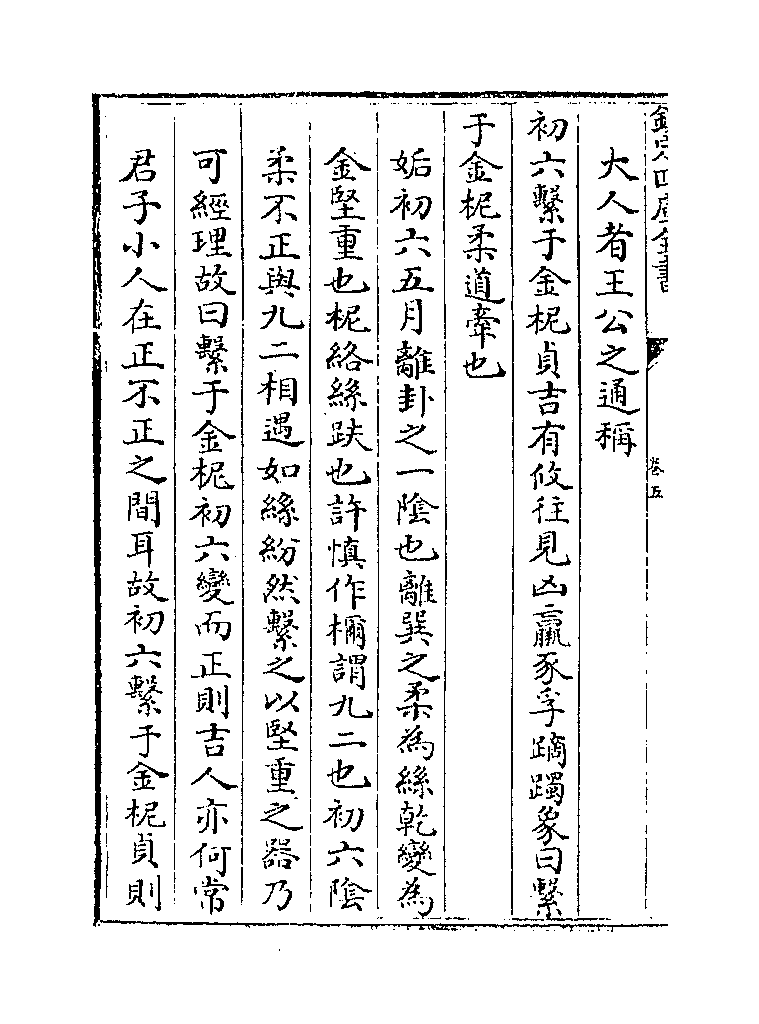 欽定四庫全書
卷五
大人者王公之通稱
初六繫于金柅貞吉有攸往見凶羸豕孚蹢躅象曰繫
于金柅柔道牽也
姤初六五月離卦之一陰也離巽之柔為絲乾變為
金堅重也柅絡絲趺也許慎作檷謂九二也初六陰
柔不正與九二相遇如絲紛然繫之以堅重之器乃
可經理故曰繫于金柅初六變而正則吉人亦何常
君子小人在正不正之間耳故初六繫于金柅貞則